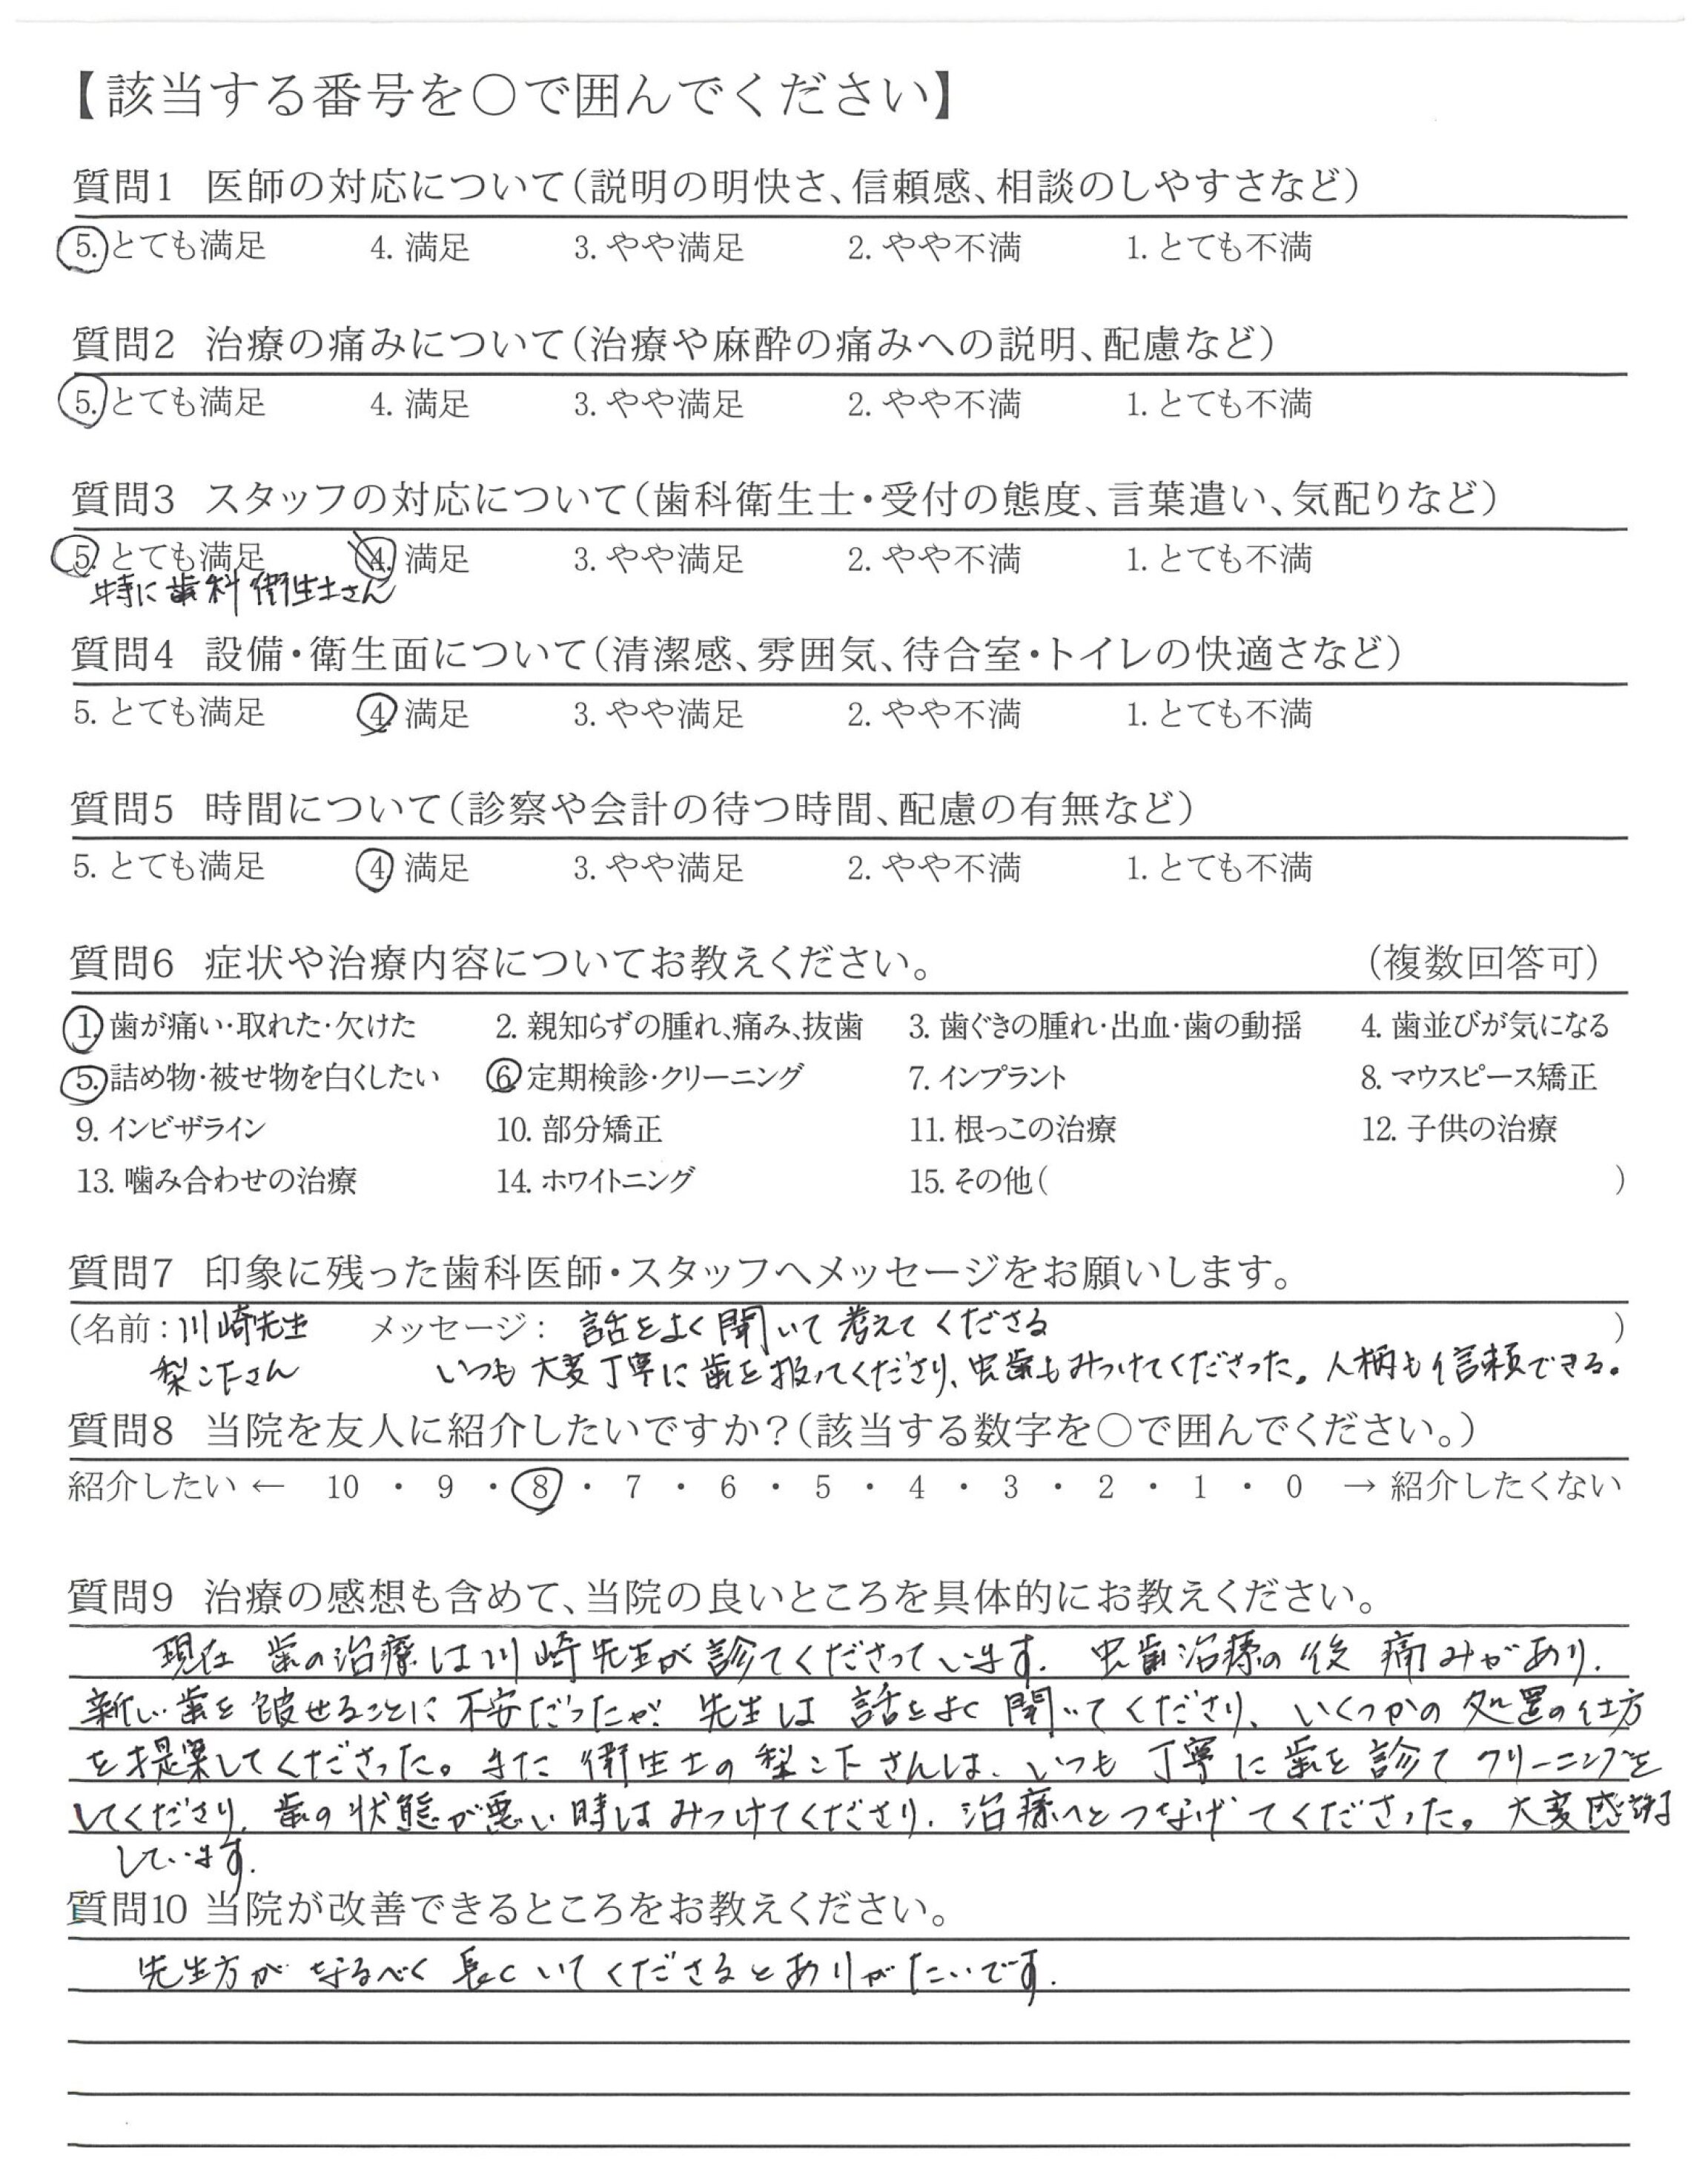 【該当する番号を○で囲んでください】
質問1 医師の対応について（説明の明快さ、信頼感、相談のしやすさなど）
5. とても満足 4. 満足 3. やや満足 2. やや不満 1. とても不満
質問2 治療の痛みについて（治療や麻酔の痛みへの説明、配慮など）
5. とても満足 4. 満足 3. やや満足 2. やや不満 1. とても不満
質問3 スタッフの対応について（歯科衛生士・受付の態度、言葉遣い、気配りなど）
5. とても満足 4. 満足 3. やや満足 2. やや不満 1. とても不満
特に歯科衛生士さん
質問4 設備・衛生面について（清潔感、雰囲気、待合室・トイレの快適さなど）
5. とても満足 4. 満足 3. やや満足 2. やや不満 1. とても不満
質問5 時間について（診察や会計の待つ時間、配慮の有無など）
5. とても満足 4. 満足 3. やや満足 2. やや不満 1. とても不満
質問6 症状や治療内容についてお教えください。 （複数回答可）
1. 歯が痛い・取れた・欠けた 2. 親知らずの腫れ、痛み、抜歯 3. 歯ぐきの腫れ・出血・歯の動揺 4. 歯並びが気になる
5. 詰め物・被せ物を白くしたい 6. 定期検診・クリーニング 7. インプラント 8. マウスピース矯正
9. インビザライン 10. 部分矯正 11. 根っこの治療 12. 子供の治療
13. 噛み合わせの治療 14. ホワイトニング 15. その他( )
質問7 印象に残った歯科医師・スタッフへメッセージをお願いします。
（名前：川崎先生 メッセージ： 話をよく聞いて考えてくださる ）
梨こ下さん いつも大変丁寧に歯を扱ってくださり、虫歯もみつけてくださった。人柄も信頼できる。
質問8 当院を友人に紹介したいですか？（該当する数字を○で囲んでください。）
紹介したい ← 10 ・ 9 ・ 8 ・ 7 ・ 6 ・ 5 ・ 4 ・ 3 ・ 2 ・ 1 ・ 0 → 紹介したくない
質問9 治療の感想も含めて、当院の良いところを具体的にお教えください。
現在 歯の治療は川崎先生が診てくださっています。虫歯治療の後 痛みがあり、
新しい歯を被せることに不安だったが、先生は 話をよく聞いてくださり、いくつかの処置の仕方
を提案してくださった。また 衛生士の梨こ下さんは、いつも丁寧に歯を診てクリーニングを
してくださり、歯の状態が悪い時はみつけてくださり、治療へとつなげてくださった。大変感謝
しています。
質問10 当院が改善できるところをお教えください。
先生方が なるべく 長く いてくださるとありがたいです。